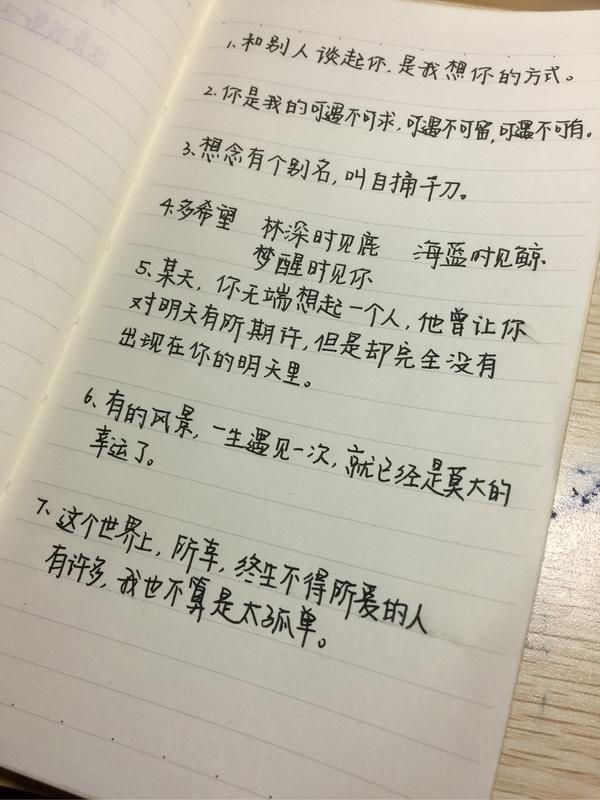 1. 和别人谈起你,是我想你的方式。
2. 你是我的可遇不可求,可遇不可留,可遇不可有。
3. 想念有个别名,叫自捅千刀。
4. 多希望 林深时见鹿 海蓝时见鲸
梦醒时见你
5、某天,你无端想起一个人,他曾让你
对明天有所期许,但是却完全没有
出现在你的明天里。
6、有的风景,一生遇见一次,就已经是莫大的
幸运了。
7、这个世界上,所幸,终生不得所爱的人
有许多,我也不算是太孤单。